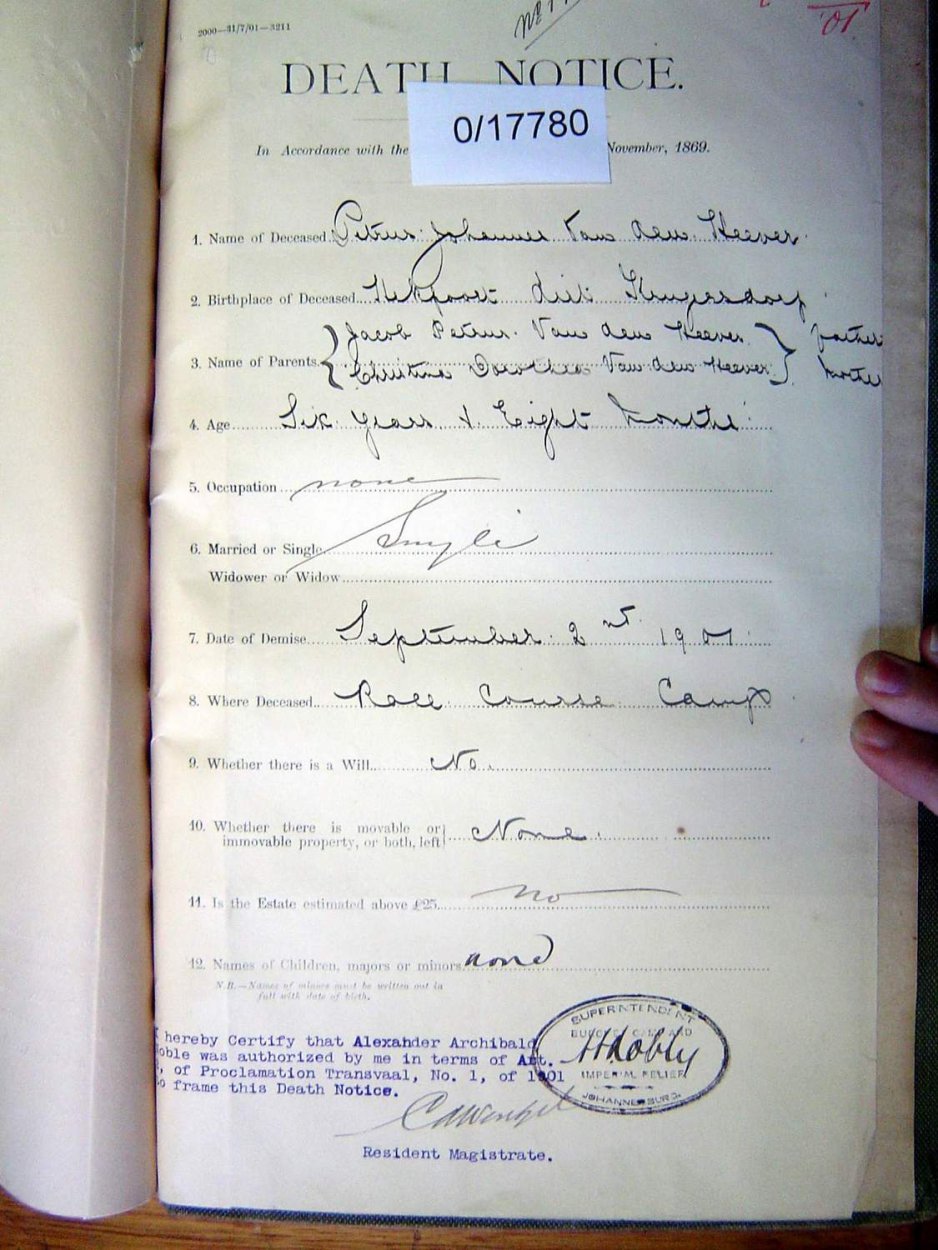 2000—31/7/01—3211
'01
DEATH NOTICE.
0/17780
In Accordance with the November, 1869.
1. Name of Deceased Petrus Johannes Van den Heever
2. Birthplace of Deceased Hekpoort dist: Krugersdorp
Jacob Petrus Van den Heever father
3. Name of Parents
Christina Dorothea Van den Heever mother
4. Age Six years & Eight months
5. Occupation none
6. Married or Single Single
Widower or Widow
7. Date of Demise September 2nd 1901
8. Where Deceased Race Course Camp
9. Whether there is a Will No.
10. Whether there is movable or
immovable property, or both, left None
11. Is the Estate estimated above £25 no
12. Names of Children, majors or minors none
N.B.—Names of minors must be written out in
full with date of birth.
hereby Certify that Alexander Archibald
oble was authorized by me in terms of Art.
, of Proclamation Transvaal, No. 1, of 1901
o frame this Death Notice.
SUPERINTENDENT
IMPERIAL RELIEF
JOHANNESBURG.
Resident Magistrate.